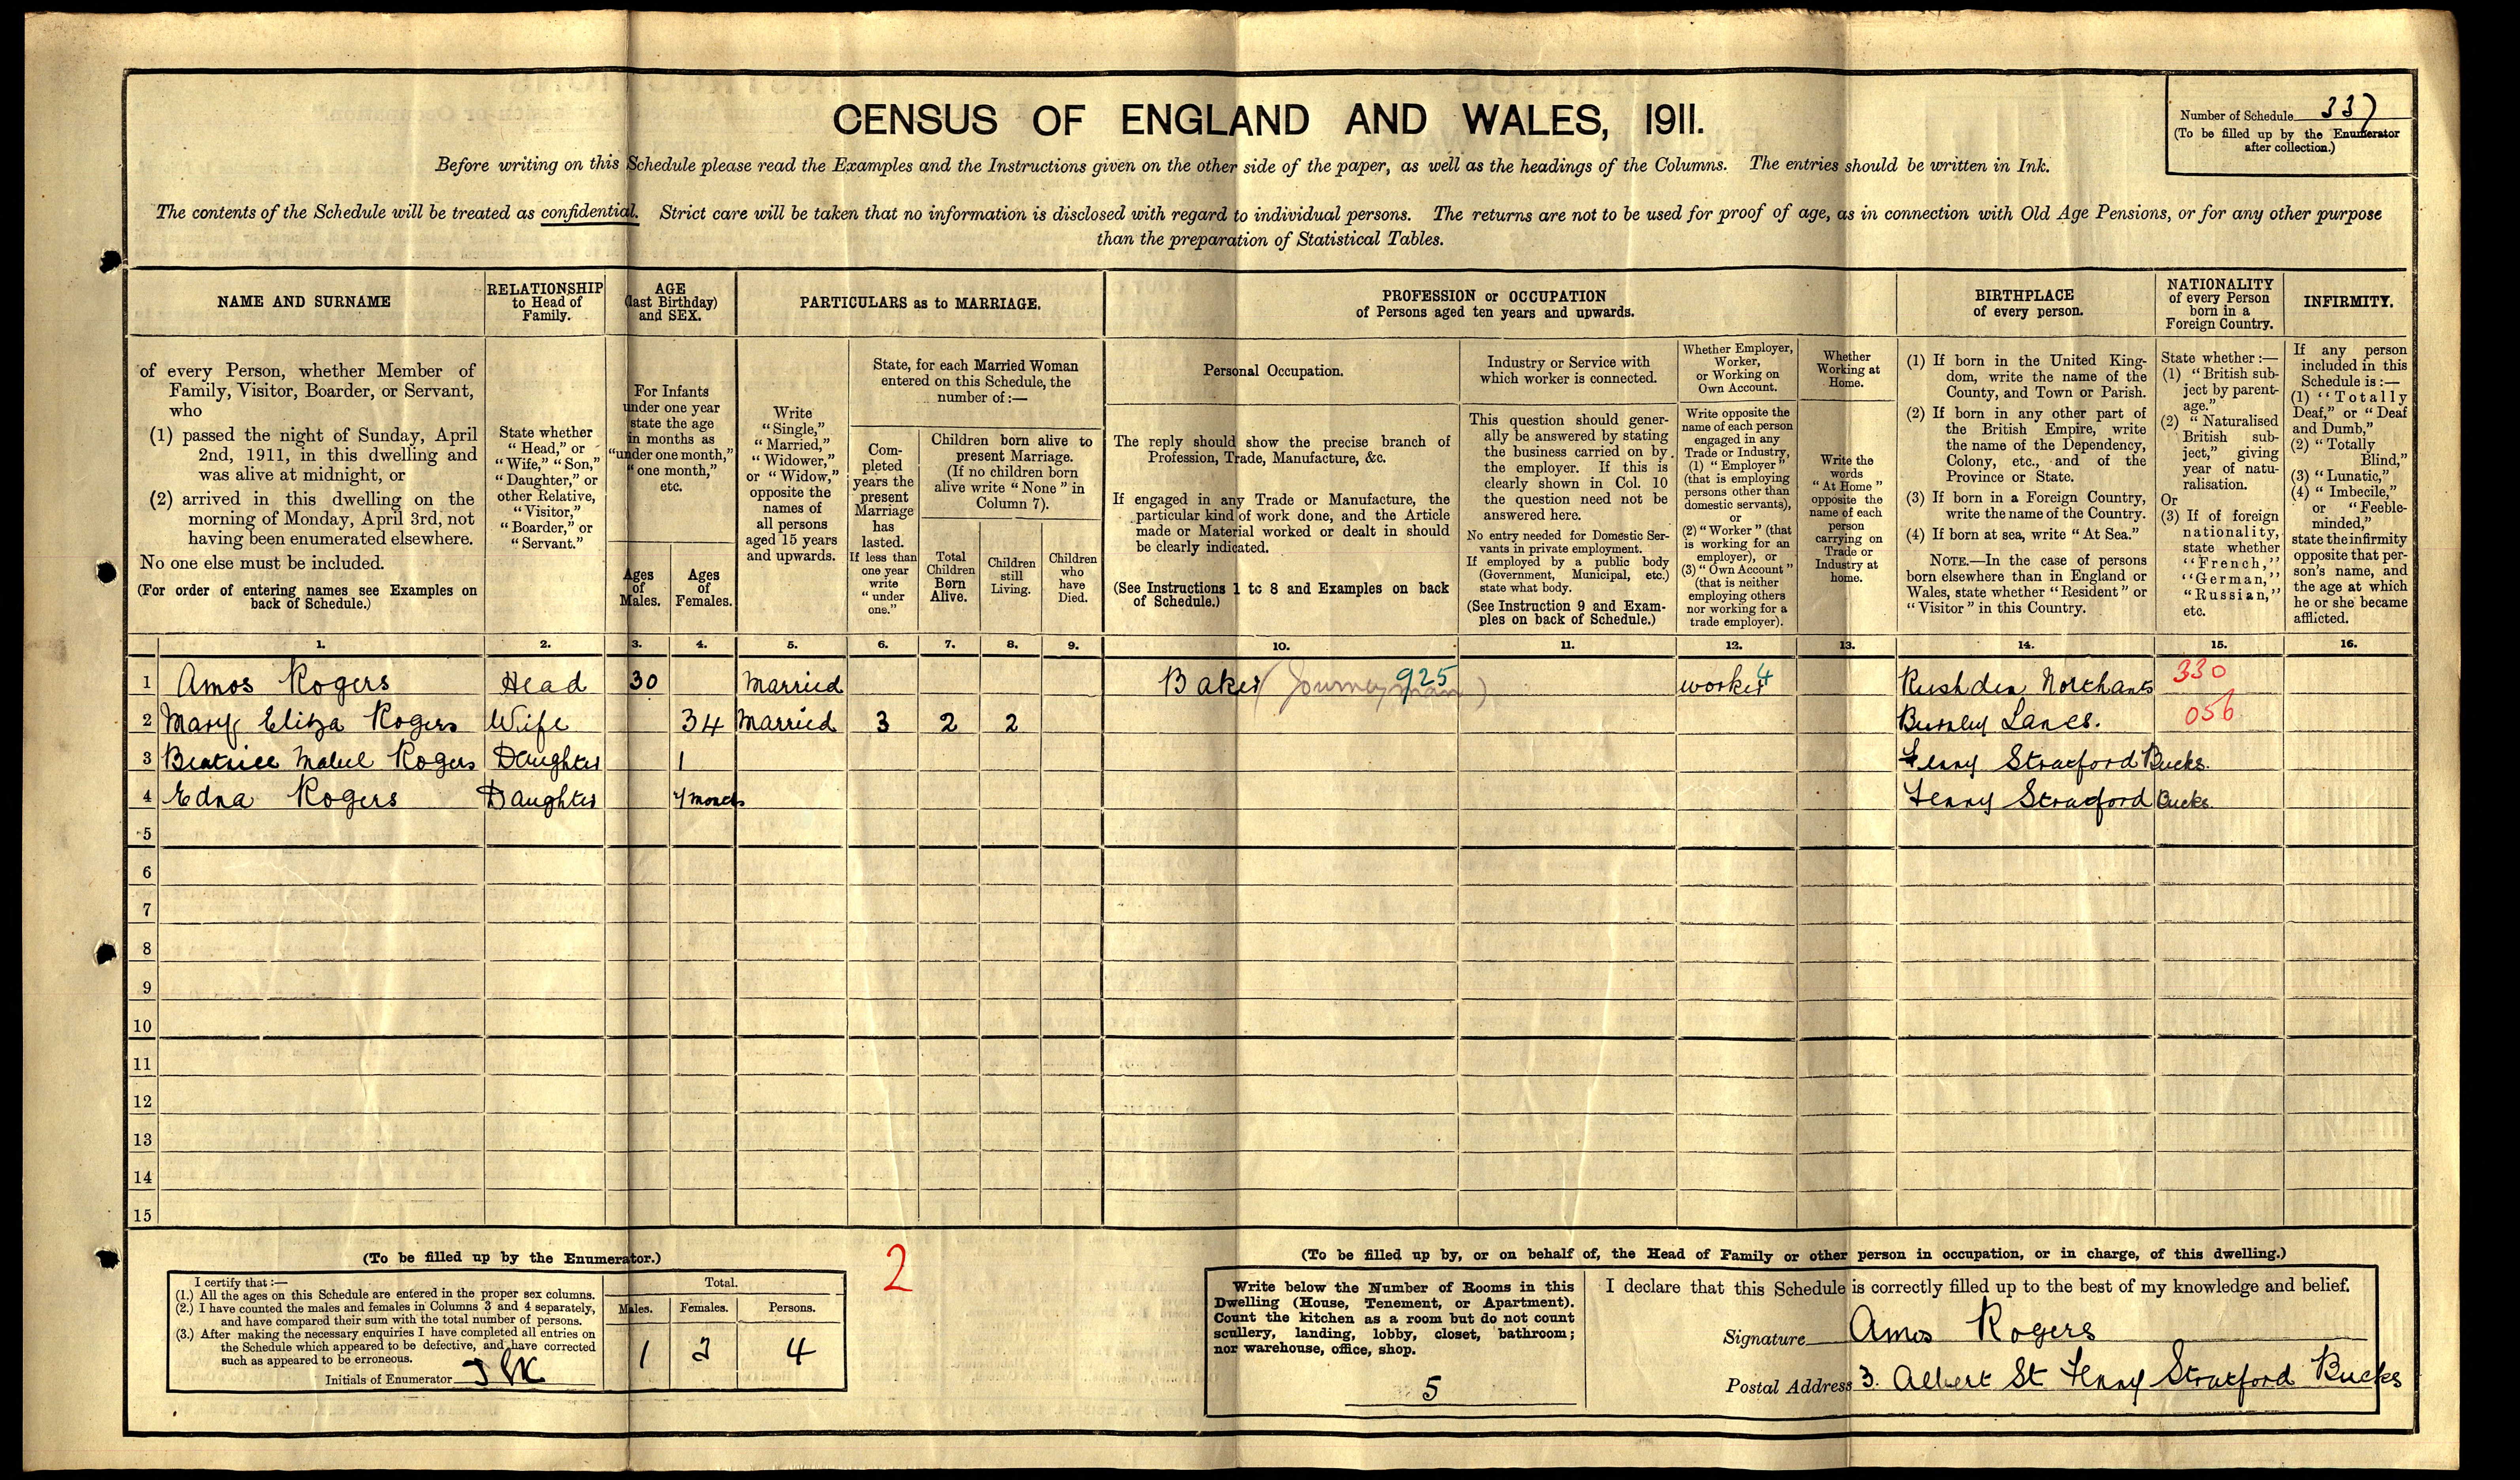 CENSUS OF ENGLAND AND WALES, 1911.
Number of Schedule 337
(To be filled up by the Enumerator
after collection.)
Before writing on this Schedule please read the Examples and the Instructions given on the other side of the paper, as well as the headings of the Columns. The entries should be written in Ink.
The contents of the Schedule will be treated as confidential. Strict care will be taken that no information is disclosed with regard to individual persons. The returns are not to be used for proof of age, as in connection with Old Age Pensions, or for any other purpose
than the preparation of Statistical Tables.
NAME AND SURNAME
of every Person, whether Member of
Family, Visitor, Boarder, or Servant,
who
(1) passed the night of Sunday, April
2nd, 1911, in this dwelling and
was alive at midnight, or
(2) arrived in this dwelling on the
morning of Monday, April 3rd, not
having been enumerated elsewhere.
No one else must be included.
(For order of entering names see Examples on
back of Schedule.)
RELATIONSHIP
to Head of
Family.
State whether
"Head," or
"Wife," "Son,"
"Daughter," or
other Relative,
"Visitor,"
"Boarder," or
"Servant."
AGE
(last Birthday)
and SEX.
For Infants
under one year
state the age
in months as
"under one month,"
"one month,"
etc.
Ages
of
Males.
Ages
of
Females.
PARTICULARS as to MARRIAGE.
Write
"Single,"
"Married,"
"Widower,"
or "Widow,"
opposite the
names of
all persons
aged 15 years
and upwards.
State, for each Married Woman
entered on this Schedule, the
number of:—
Com-
pleted
years the
present
Marriage
has
lasted.
If less than
one year
write
"under
one."
Children born alive to
present Marriage.
(If no children born
alive write "None" in
Column 7).
Total
Children
Born
Alive.
Children
still
Living.
Children
who
have
Died.
PROFESSION or OCCUPATION
of Persons aged ten years and upwards.
Personal Occupation.
The reply should show the precise branch of
Profession, Trade, Manufacture, &c.
If engaged in any Trade or Manufacture, the
particular kind of work done, and the Article
made or Material worked or dealt in should
be clearly indicated.
(See Instructions 1 to 8 and Examples on back
of Schedule.)
Industry or Service with
which worker is connected.
This question should gener-
ally be answered by stating
the business carried on by
the employer. If this is
clearly shown in Col. 10
the question need not be
answered here.
No entry needed for Domestic Ser-
vants in private employment.
If employed by a public body
(Government, Municipal, etc.)
state what body.
(See Instruction 9 and Exam-
ples on back of Schedule.)
Whether Employer,
Worker,
or Working on
Own Account.
Write opposite the
name of each person
engaged in any
Trade or Industry,
(1) "Employer"
(that is employing
persons other than
domestic servants),
or
(2) "Worker" (that
is working for an
employer), or
(3) "Own Account"
(that is neither
employing others
nor working for a
trade employer).
Whether
Working at
Home.
Write the
words
"At Home"
opposite the
name of each
person
carrying on
Trade or
Industry at
home.
BIRTHPLACE
of every person.
(1) If born in the United King-
dom, write the name of the
County, and Town or Parish.
(2) If born in any other part of
the British Empire, write
the name of the Dependency,
Colony, etc., and of the
Province or State.
(3) If born in a Foreign Country,
write the name of the Country.
(4) If born at sea, write "At Sea."
NOTE.—In the case of persons
born elsewhere than in England or
Wales, state whether "Resident" or
"Visitor" in this Country.
NATIONALITY
of every Person
born in a
Foreign Country.
State whether :—
(1) "British sub-
ject by parent-
age."
(2) "Naturalised
British sub-
ject," giving
year of natu-
ralisation.
Or
(3) If of foreign
nationality,
state whether
"French,"
"German,"
"Russian,"
etc.
INFIRMITY.
If any person
included in this
Schedule is :—
(1) "Totally
Deaf," or "Deaf
and Dumb,"
(2) "Totally
Blind,"
(3) "Lunatic,"
(4) "Imbecile,"
or "Feeble-
minded,"
state the infirmity
opposite that per-
son's name, and
the age at which
he or she became
afflicted.
1. 2. 3. 4. 5. 6. 7. 8. 9. 10. 11. 12. 13. 14. 15. 16.
1 Amos Rogers Head 30 Married Baker (Journeyman) 925 worker 4 Rushden Northants 330
2 Mary Eliza Rogers Wife 34 Married 3 2 2 Burnley Lancs. 056
3 Beatrice Mabel Rogers Daughter 1 Fenny Stratford Bucks.
4 Edna Rogers Daughter months Fenny Stratford Bucks.
5
6
7
8
9
10
11
12
13
14
15
(To be filled up by the Enumerator.)
I certify that :—
(1.) All the ages on this Schedule are entered in the proper sex columns.
(2.) I have counted the males and females in Columns 3 and 4 separately,
and have compared their sum with the total number of persons.
(3.) After making the necessary enquiries I have completed all entries on
the Schedule which appeared to be defective, and have corrected
such as appeared to be erroneous.
Initials of Enumerator
Total.
Males. Females. Persons.
1 3 4
2
(To be filled up by, or on behalf of, the Head of Family or other person in occupation, or in charge, of this dwelling.)
Write below the Number of Rooms in this
Dwelling (House, Tenement, or Apartment).
Count the kitchen as a room but do not count
scullery, landing, lobby, closet, bathroom;
nor warehouse, office, shop.
5
I declare that this Schedule is correctly filled up to the best of my knowledge and belief.
Signature Amos Rogers
Postal Address 3. Albert St Fenny Stratford Bucks